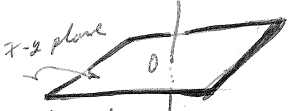 x-y plane
0